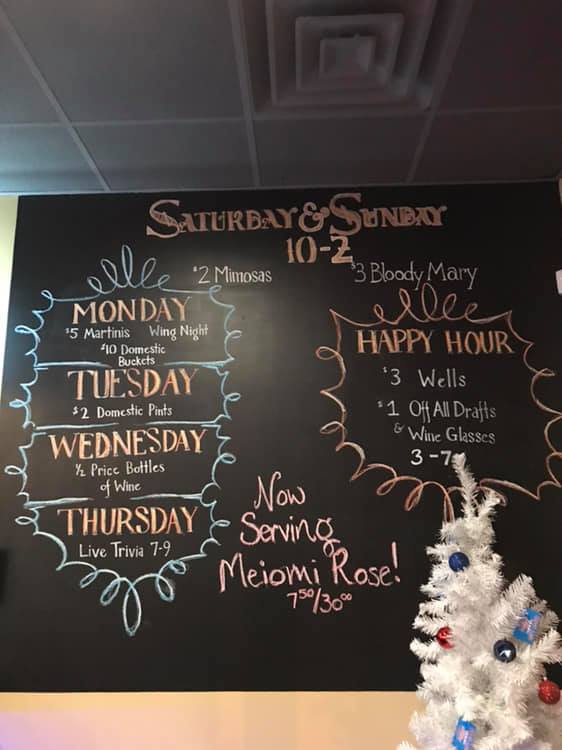 SATURDAY & SUNDAY
10-2
$2 Mimosas $3 Bloody Mary
MONDAY
$5 Martinis Wing Night
$10 Domestic
Buckets
TUESDAY
$2 Domestic Pints
WEDNESDAY
½ Price Bottles
of Wine
THURSDAY
Live Trivia 7-9
HAPPY HOUR
$3 Wells
$1 Off All Drafts
& Wine Glasses
3-7
Now
Serving
Meiomi Rose!
7⁵⁰/30⁰⁰